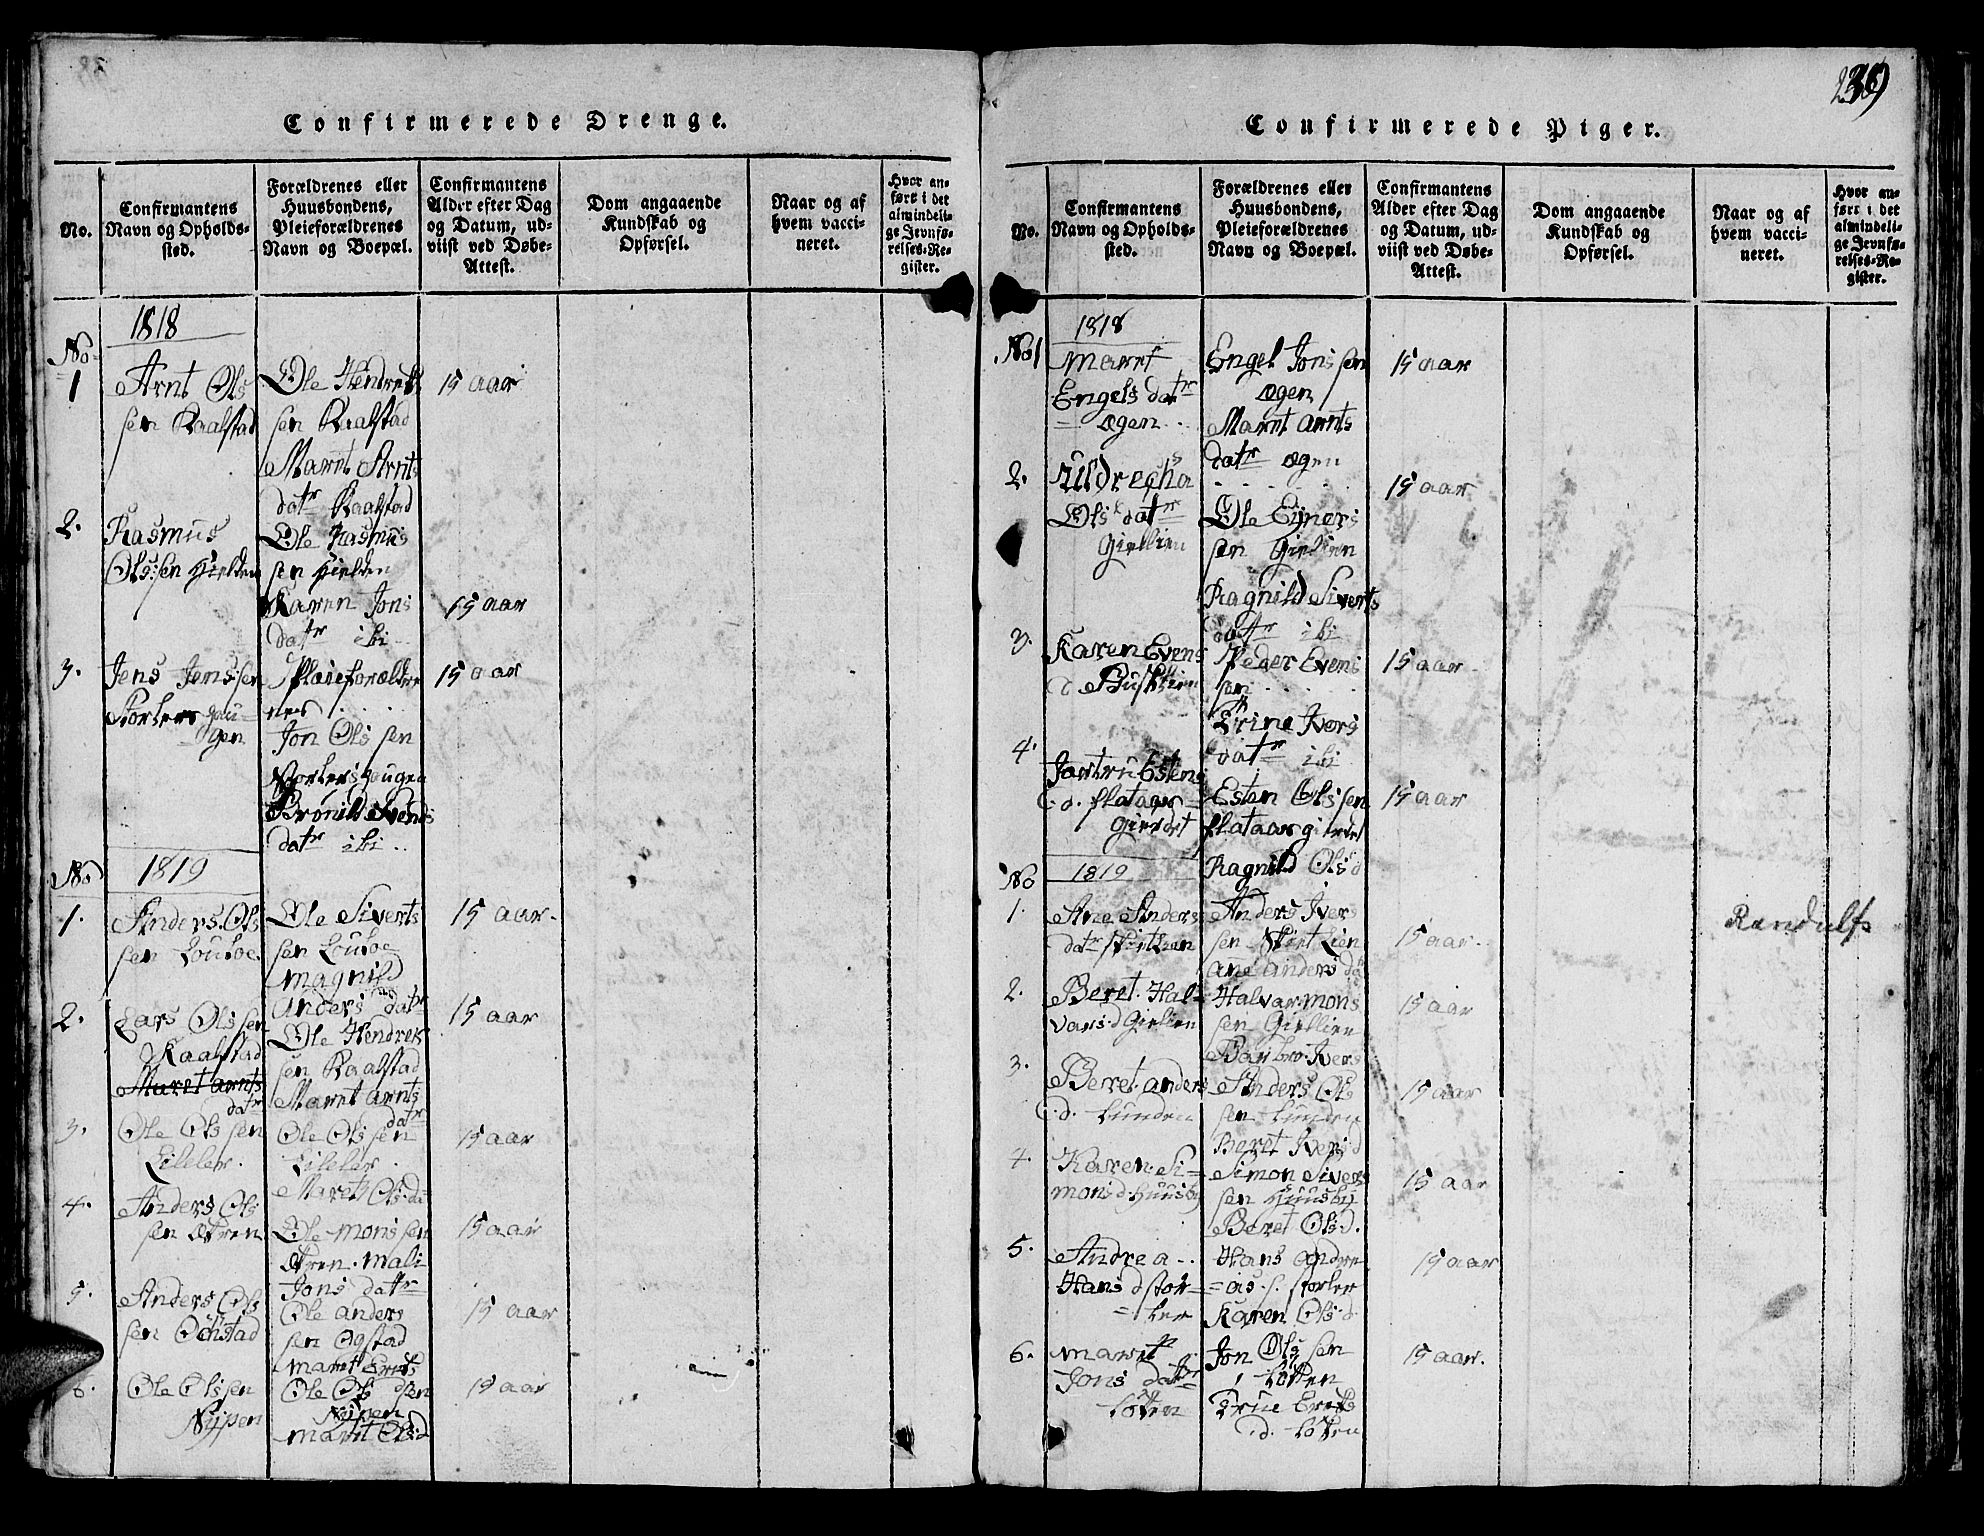 Confirmerede Drenge.
No.
Confirmantens
Navn og Opholds-
sted.
Forældrenes eller
Huusbondens,
Pleieforældrenes
Navn og Boepæl.
Confirmantens
Alder efter Dag
og Datum, ud-
viist ved Døbe-
Attest.
Dom angaaende
Kundskab og
Opførsel.
Naar og af
hvem vacci-
neret.
Hvor an-
ført i det
almindeli-
ge Jevnfø-
relses-Re-
gister.
1818
No
1
Arnt Ols
sen Kaalstad
Ole Hendrets
sen Kaalstad
Maret Arnts
datr Kaalstad
15 aar
2.
Rasmus
Ols:sen Hielden
Ole Rasmus
sen Hielden
Karen Jons
datr ibi
15 aar
3.
Jens Jens:sen
Storlershougen
Pleieforældre
nes
Jon Ols sen
Storlershougen
Brønild Svends
datr ibi ..
15 aar
1819
No
1.
Anders Ols
sen Loutoe.
Ole Siverts
sen Loutoe
Magnild
Anders datr
15 aar.
2.
Lars Ols sen
Kaalstad
Maret arnts
datr
Ole Hendrek
sen Kaalstad
Maret arnts
datr
15 aar
3.
Ole Ols sen
Lileler.
Ole Ols sen
Lileler.
Maret Ols:da
15 aar
4.
Anders Ols
sen Æren
Ole Mons sen
Æren. Mali
Jons datr
15 aar
5.
Anders Ols
sen Ogstad
Ole anders
sen Ogstad
Maret Erets
15 aar
6.
Ole Olssen
Nypen
Ole Ols sen
Nypen
Marit Ols:d
15 aar
239
Confirmerede Piger.
No.
Confirmantens
Navn og Opholds-
sted.
Forældrenes eller
Huusbondens,
Pleieforældrenes
Navn og Boepæl.
Confirmantens
Alder efter Dag
og Datum, ud-
viist ved Døbe-
Attest.
Dom angaaende
Kundskab og
Opførsel.
Naar og af
hvem vacci-
neret.
Hvor an-
ført i det
almindeli-
ge Jevnfø-
relses-Re-
gister.
1818
No 1
Maret
Engels datr
= Øgen ..
Engel Jons sen
Øgen
Maret arnts
datr Øgen
15 aar
2.
Uldrecha
Ols datr
Giellien
Ole Ejners
sen Giellien
Ragnild Siverts
datr ibi
15 aar
3.
Karen Evens
d
Peder Evens
sen
Erine Ivers
datr ibi
15 aar
4.
Jartru Estens
d. flataas=
gierdet
Esten Ols sen
flataasgierdet
Ragnild Ols d
15 aar
1819
No
1.
Ane Anders
datr Skietlien
Anders Ivers
sen Skiet Lien
ane anders da
15 aar.
Randulfs
2.
Beret Hal=
vars.d Giellien
Halvar mons
sen Giellien
Barbro Ivers
15 aar
3.
Beret anders
.d. Lunden
Anders Ols
sen Lunden
Beret Ivers d
15 aar
4.
Karen. Si=
mons d. Huusby
Simon Sivers
sen Huusby
Beret Ols:d.
15 aar
5.
Andrea ..
Hans d stor=
= ler
Hans Andre
= as. s. storler
Karen Ols:d.
15 aar
6.
Maret
Jons datr
Løften
Jon Ols sen
Løften
Erue Erets
.d. Løften
15 aar.